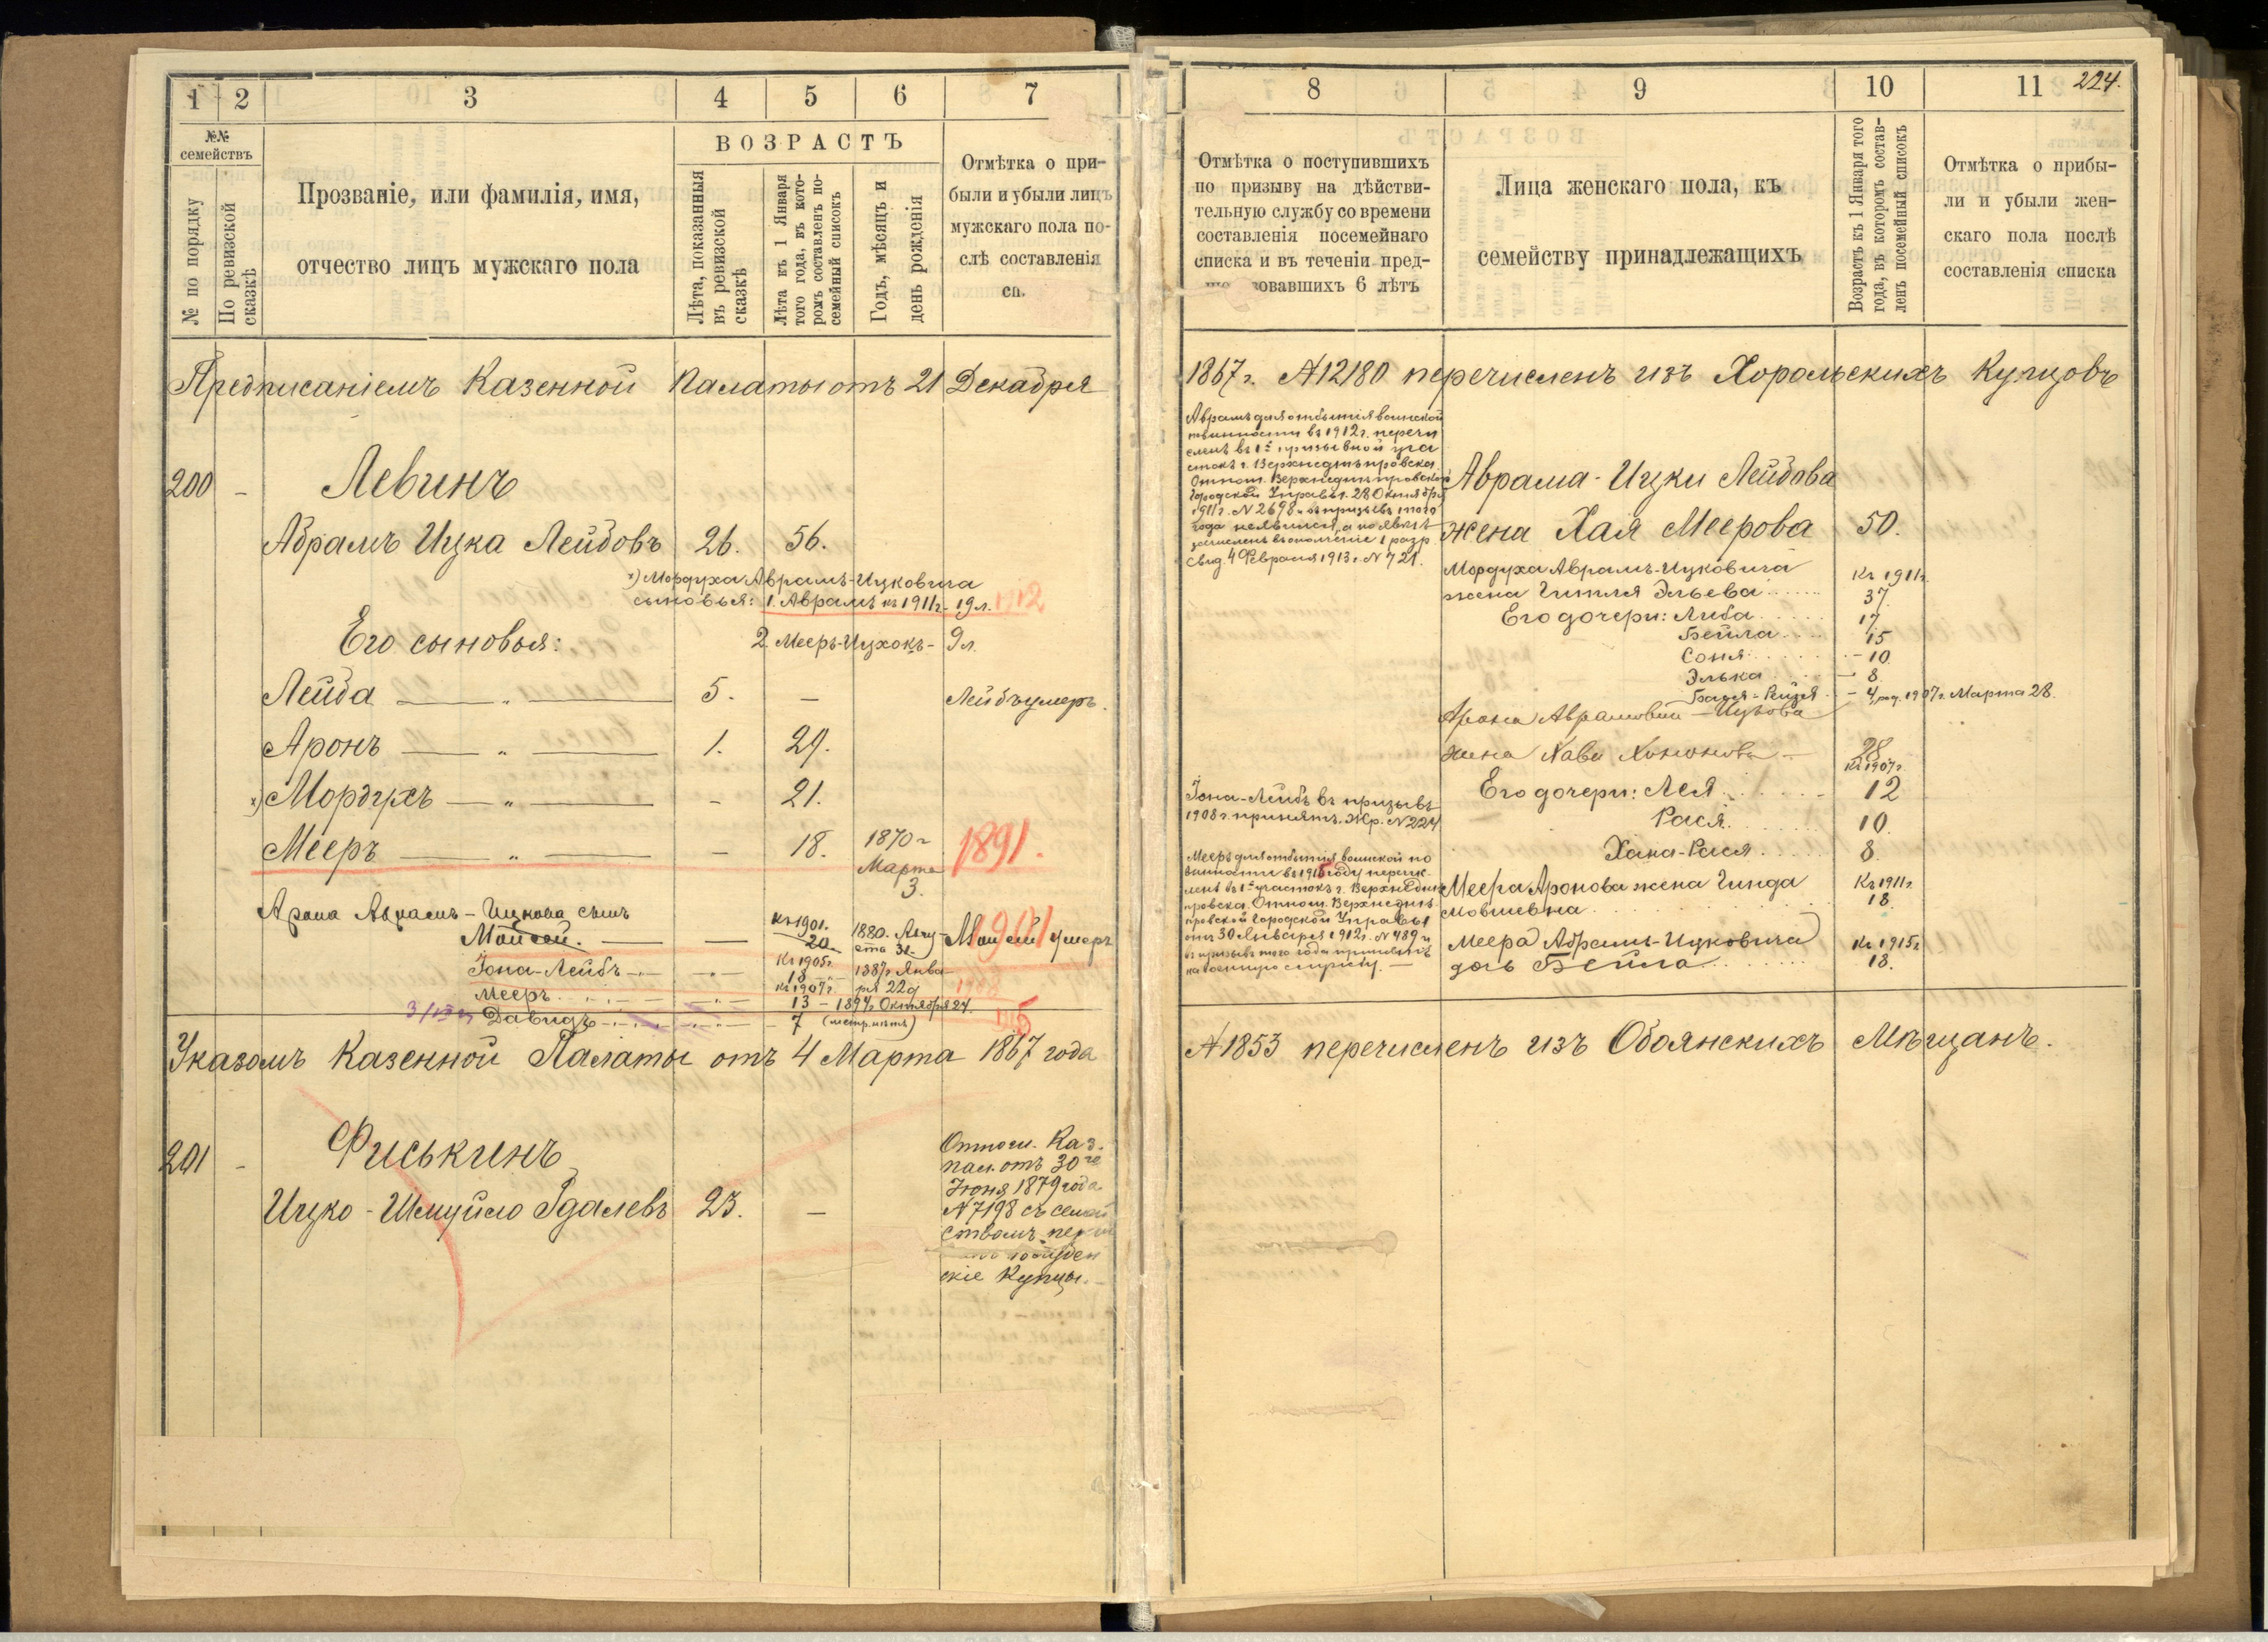 1 2 3 4 5 6 7
№№ семействъ
№ по порядку
По ревизской сказкѣ
Прозваніе, или фамилія, имя,
отчество лицъ мужскаго пола
ВОЗРАСТЪ
Лѣта, показанныя въ ревизской сказкѣ
Лѣта къ 1 Января того года, въ кото-
ромъ составленъ по-
семейный списокъ
Годъ, мѣсяцъ и
день рожденія
Отмѣтка о при-
были и убыли лицъ
мужскаго пола по-
слѣ составленія
сп.
Предписаніемъ Казенной Палаты отъ 21 Декабря
200 - Левинъ
Абрамъ Ицка Лейбовъ 26. 56.
х) Мордуха Абрамъ-Ицковича
сыновья: 1. Абрамъ къ 1911г. 19 л. 1912
Его сыновья: 2. Мееръ-Ицхокъ - 9 л.
Лейба — „ — 5. — Лейбъ умеръ.
Аронъ — „ — 1. 29.
х) Мордухъ — „ — - 21.
Мееръ — „ — — 18. 1870 г Марта 3. 1891.
Арона Абрамъ-Ицкова сынъ
Мойсей. — — къ 1901. 20 1880. Авгу-
ста 31. Мойсей умеръ 1901
Іона-Лейбъ къ 1905г. 18 1887г. Янва-
ря 22д 1908
Мееръ къ 1907г. 13 - 1894. Октября 24. 1915
Давидъ 7 (метр. нѣтъ)
Указомъ Казенной Палаты отъ 4 Марта 1867 года
201 - Фиськинъ
Ицко - Шмуйло Гдалевъ 23. —
Относи. Каз.
пал. отъ 30 го
Іюня 1879 года
№ 7198 съ семей
ствомъ
скіе Купцы.
8 9 10 11 224.
Отмѣтка о поступившихъ
по призыву на дѣйстви-
тельную службу со времени
составленія посемейнаго
списка и въ теченіи пред-
шествовавшихъ 6 лѣтъ
Лица женскаго пола, къ
семейству принадлежащихъ
Возрастъ къ 1 Января того
года, въ которомъ состав-
ленъ посемейный списокъ
Отмѣтка о прибы-
ли и убыли жен-
скаго пола послѣ
составленія списка
1867 г. № 12180 перечисленъ изъ Хорольскихъ Купцовъ
Абрамъ для отбытія воинской
повинности въ 1912 г. перечи
сленъ въ 1й призывной уча
стокъ г. Верхнеднѣпровска.
Отнош. Верхнеднѣпровской
Городской Управы. 28 Октября
1911 г. № 2698 въ призывъ того
года неявился, а по явкѣ
зачисленъ въ ополченіе 1 разр.
Свид. 4 Февраля 1913 г. № 721.
Абрама - Ицки Лейбова
жена Хая Меерова 50.
Мордуха Абрамъ-Ицковича къ 1911г.
жена Гитля Эльева 37
Его дочери: Либа 17
Бейла 15
Соня - 10.
Элька - 8.
Бася-Рейзя - 4, род. 1907 г. Марта 28.
Арона Абрамовый - Ицкова
жена Хава Хононова 28
къ 1907г.
Его дочери: Лея 12
Рася 10.
Хана-Рася 8.
Іона-Лейбъ въ призывѣ
1908 г. принятъ. Жр. № 224
Мееръ для отбытія воинской по
винности въ 1915 году перечи-
сленъ въ 1й участокъ г. Верхнеднѣ
провска. Отнош. Верхнеднѣ
провской Городской Управы
отъ 30 Января 1912 г. № 489 и
въ призывъ того года принятъ
на военную службу. —
Меера Аронова жена Гинда къ 1911г.
Мовшевна 18.
Меера Абрамъ-Ицковича къ 1915г
дочь Бейла 18.
№ 1853 перечисленъ изъ Обоянскихъ Мѣщанъ.